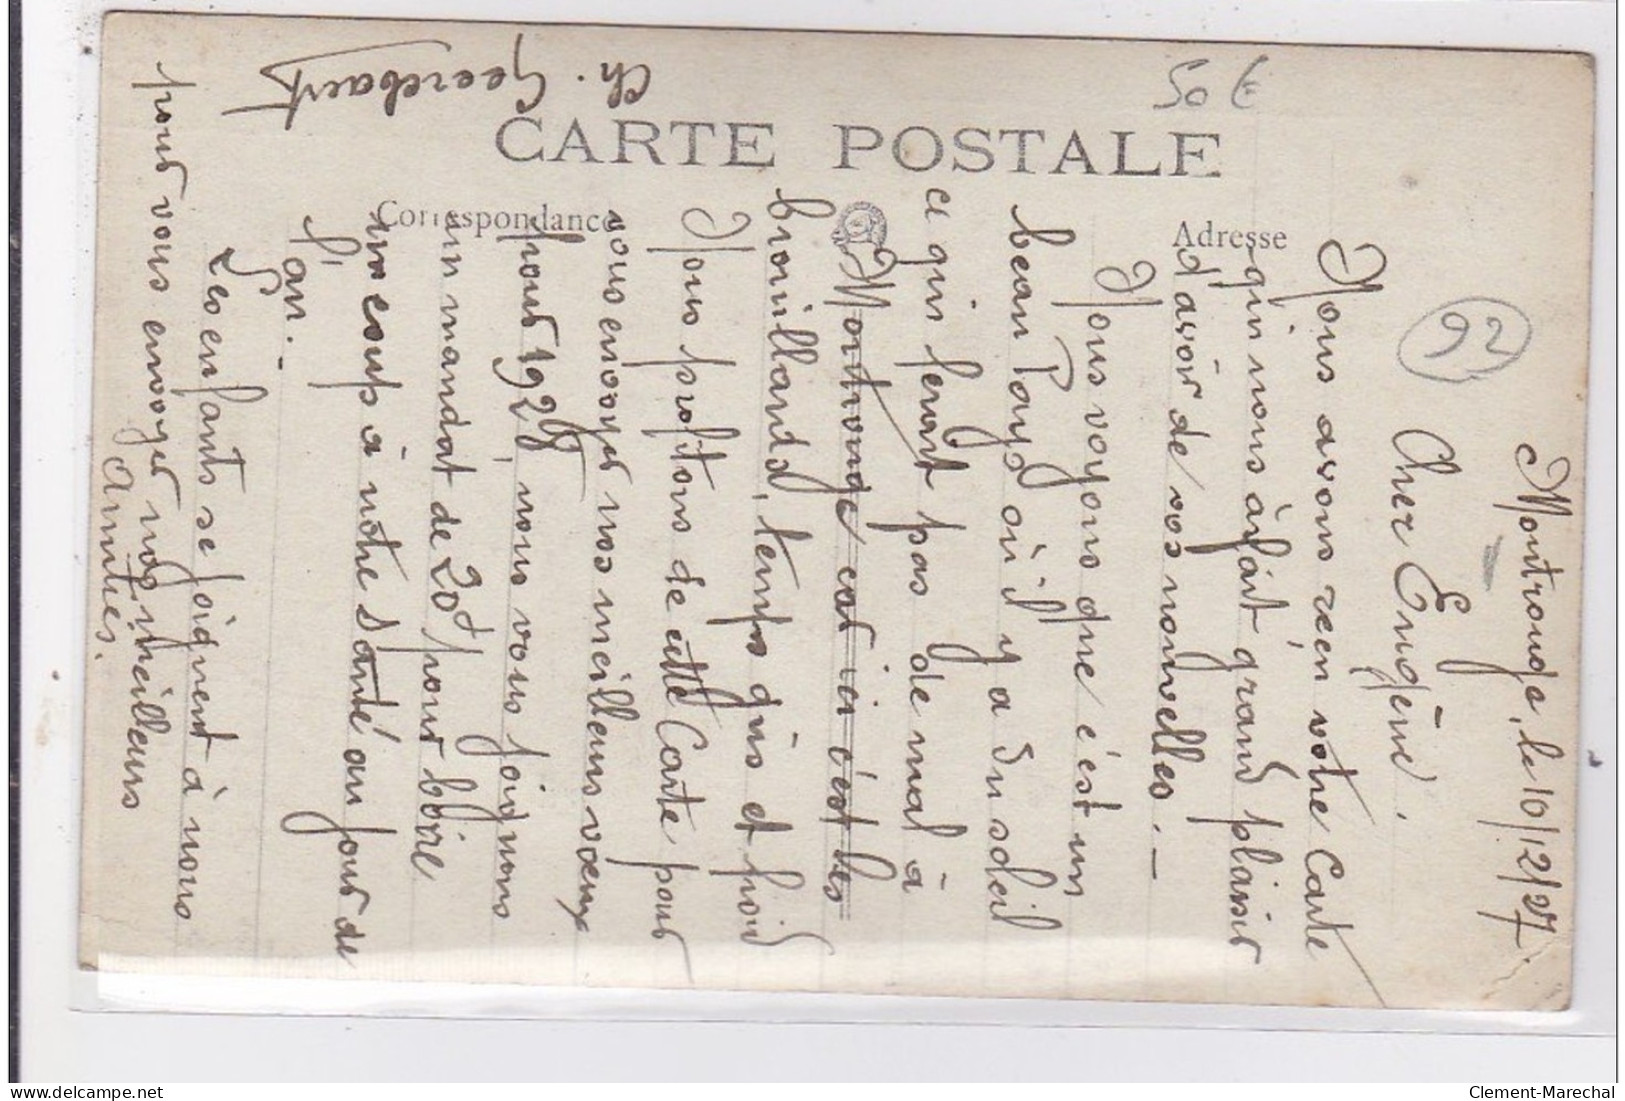 CARTE POSTALE
Correspondance
Adresse
50 €
92
Montrouge, le 10/12/27.
Cher Eugène.
Nous avons réçu votre Carte
qui nous à fait grand plaisir
d'avoir de vos nouvelles. -
Nous voyons que c'est un
beau Pays où il y a du soleil
ce qui ferait pas de mal à
Montrouge car ici c'est les
brouillards, temps gris et froid
Nous profitons de cette Carte pour
vous envoyer nos meilleurs vœux
pour 1928, nous vous joignons
un mandat de 20f pour boire
un coup à nôtre Santé au jour de
l'an. -
Les enfants se joignent à nous
pour vous envoyer nos meilleurs
Amitiés.
Ch. Geerebaert
Clement-Marechal